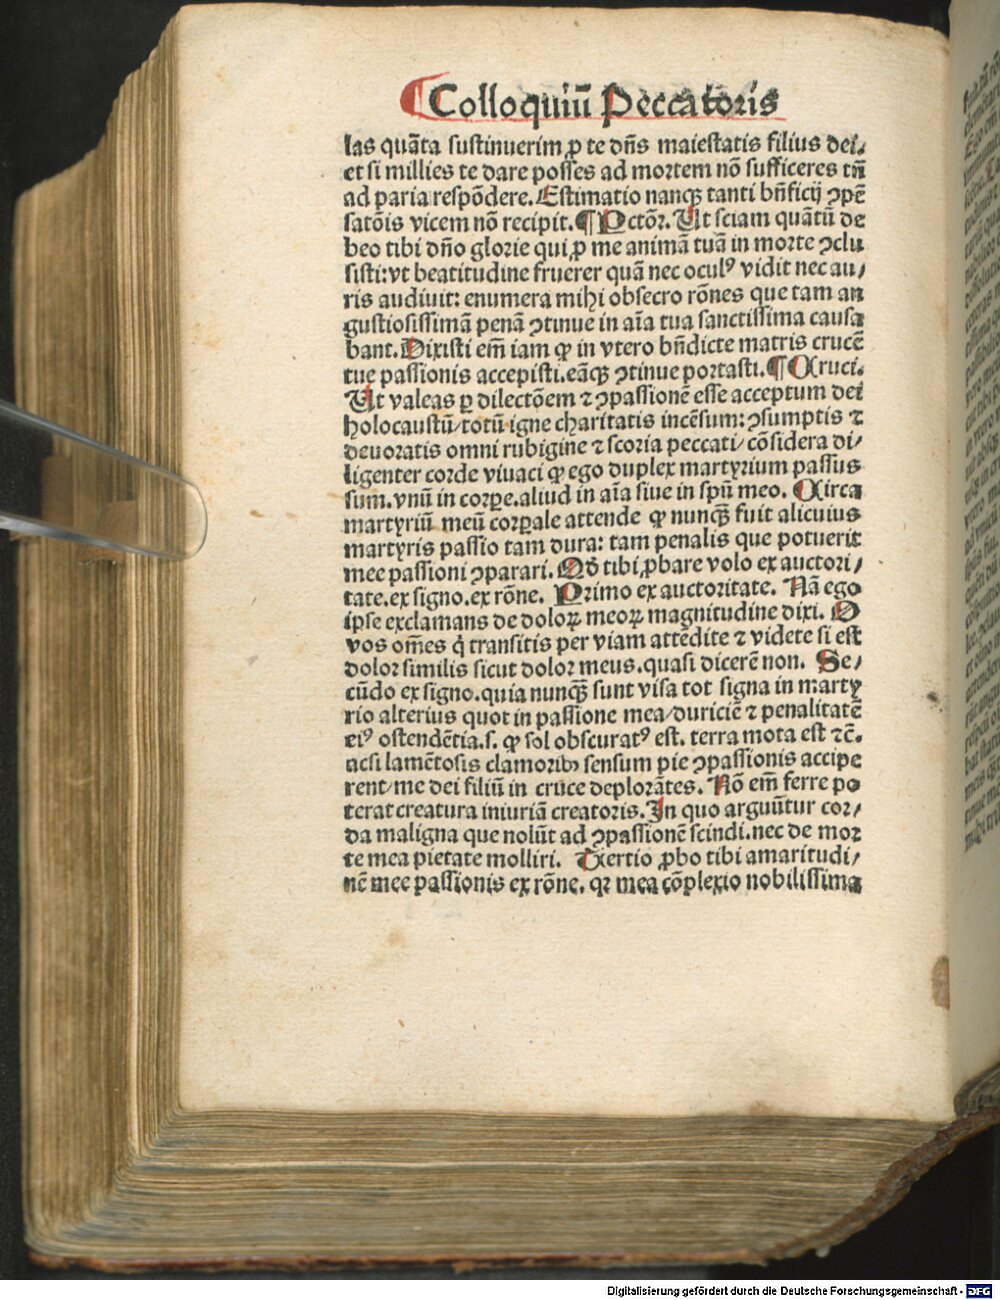 Colloquiū Peccatoris
las quāta sustinuerim ꝓ te dn̄s maiestatis filius dei.
et si millies te dare posses ad mortem nō sufficeres tn̄
ad paria respōdere. Estimatio nanqꝫ tanti bn̄ficij ↄpē
satōis vicem nō recipit. ¶ Pctōr. Ut sciam quātū de
beo tibi dn̄o glorie qui ꝓ me animā tuā in morte ↄclu
sisti: vt beatitudine fruerer quā nec oculꝰ vidit nec au/
ris audiuit: enumera mihi obsecro rōnes que tam an
gustiosissimā penā ↄtinue in aīa tua sanctissima causa
bant. Dixisti em̄ iam ꝙ in vtero bn̄dicte matris crucē
tue passionis accepisti. eāqꝫ ↄtinue portasti. ¶ Cruci.
Ut valeas ꝑ dilectōem ⁊ ↄpassionē esse acceptum dei
holocaustū/ totū igne charitatis incēsum: ↄsumptis ⁊
deuoratis omni rubigine ⁊ scoria peccati/ cōsidera di/
ligenter corde viuaci ꝙ ego duplex martyrium passus
sum. vnū in corꝑe. aliud in aīa siue in spū meo. Circa
martyriū meū corꝑale attende ꝙ nunqꝫ̄ fuit alicuius
martyris passio tam dura: tam penalis que potuerit
mee passioni ↄparari. Qd̄ tibi ꝓbare volo ex auctori/
tate. ex signo. ex rōne. Primo ex auctoritate. Nā ego
ipse exclamans de doloꝝ meoꝝ magnitudine dixi. O
vos om̄es q̇ transitis per viam attēdite ⁊ videte si est
dolor similis sicut dolor meus. quasi dicerē non. Se/
cūdo ex signo. quia nunqꝫ̄ sunt visa tot signa in marty
rio alterius quot in passione mea/ duriciē ⁊ penalitatē
eiꝰ ostendētia. s. ꝙ sol obscuratꝰ est. terra mota est ⁊c̄.
acsi lamētosis clamoribꝫ sensum pie ↄpassionis accipe
rent/ me dei filiū in cruce deplorātes. Nō em̄ ferre po
terat creatura iniuriā creatoris. In quo arguūtur cor/
da maligna que nolūt ad ↄpassionē scindi. nec de mor
te mea pietate molliri. Tertio ꝓbo tibi amaritudi/
nē mee passionis ex rōne. qꝛ mea cōplexio nobilissima
Digitalisierung gefördert durch die Deutsche Forschungsgemeinschaft - DFG